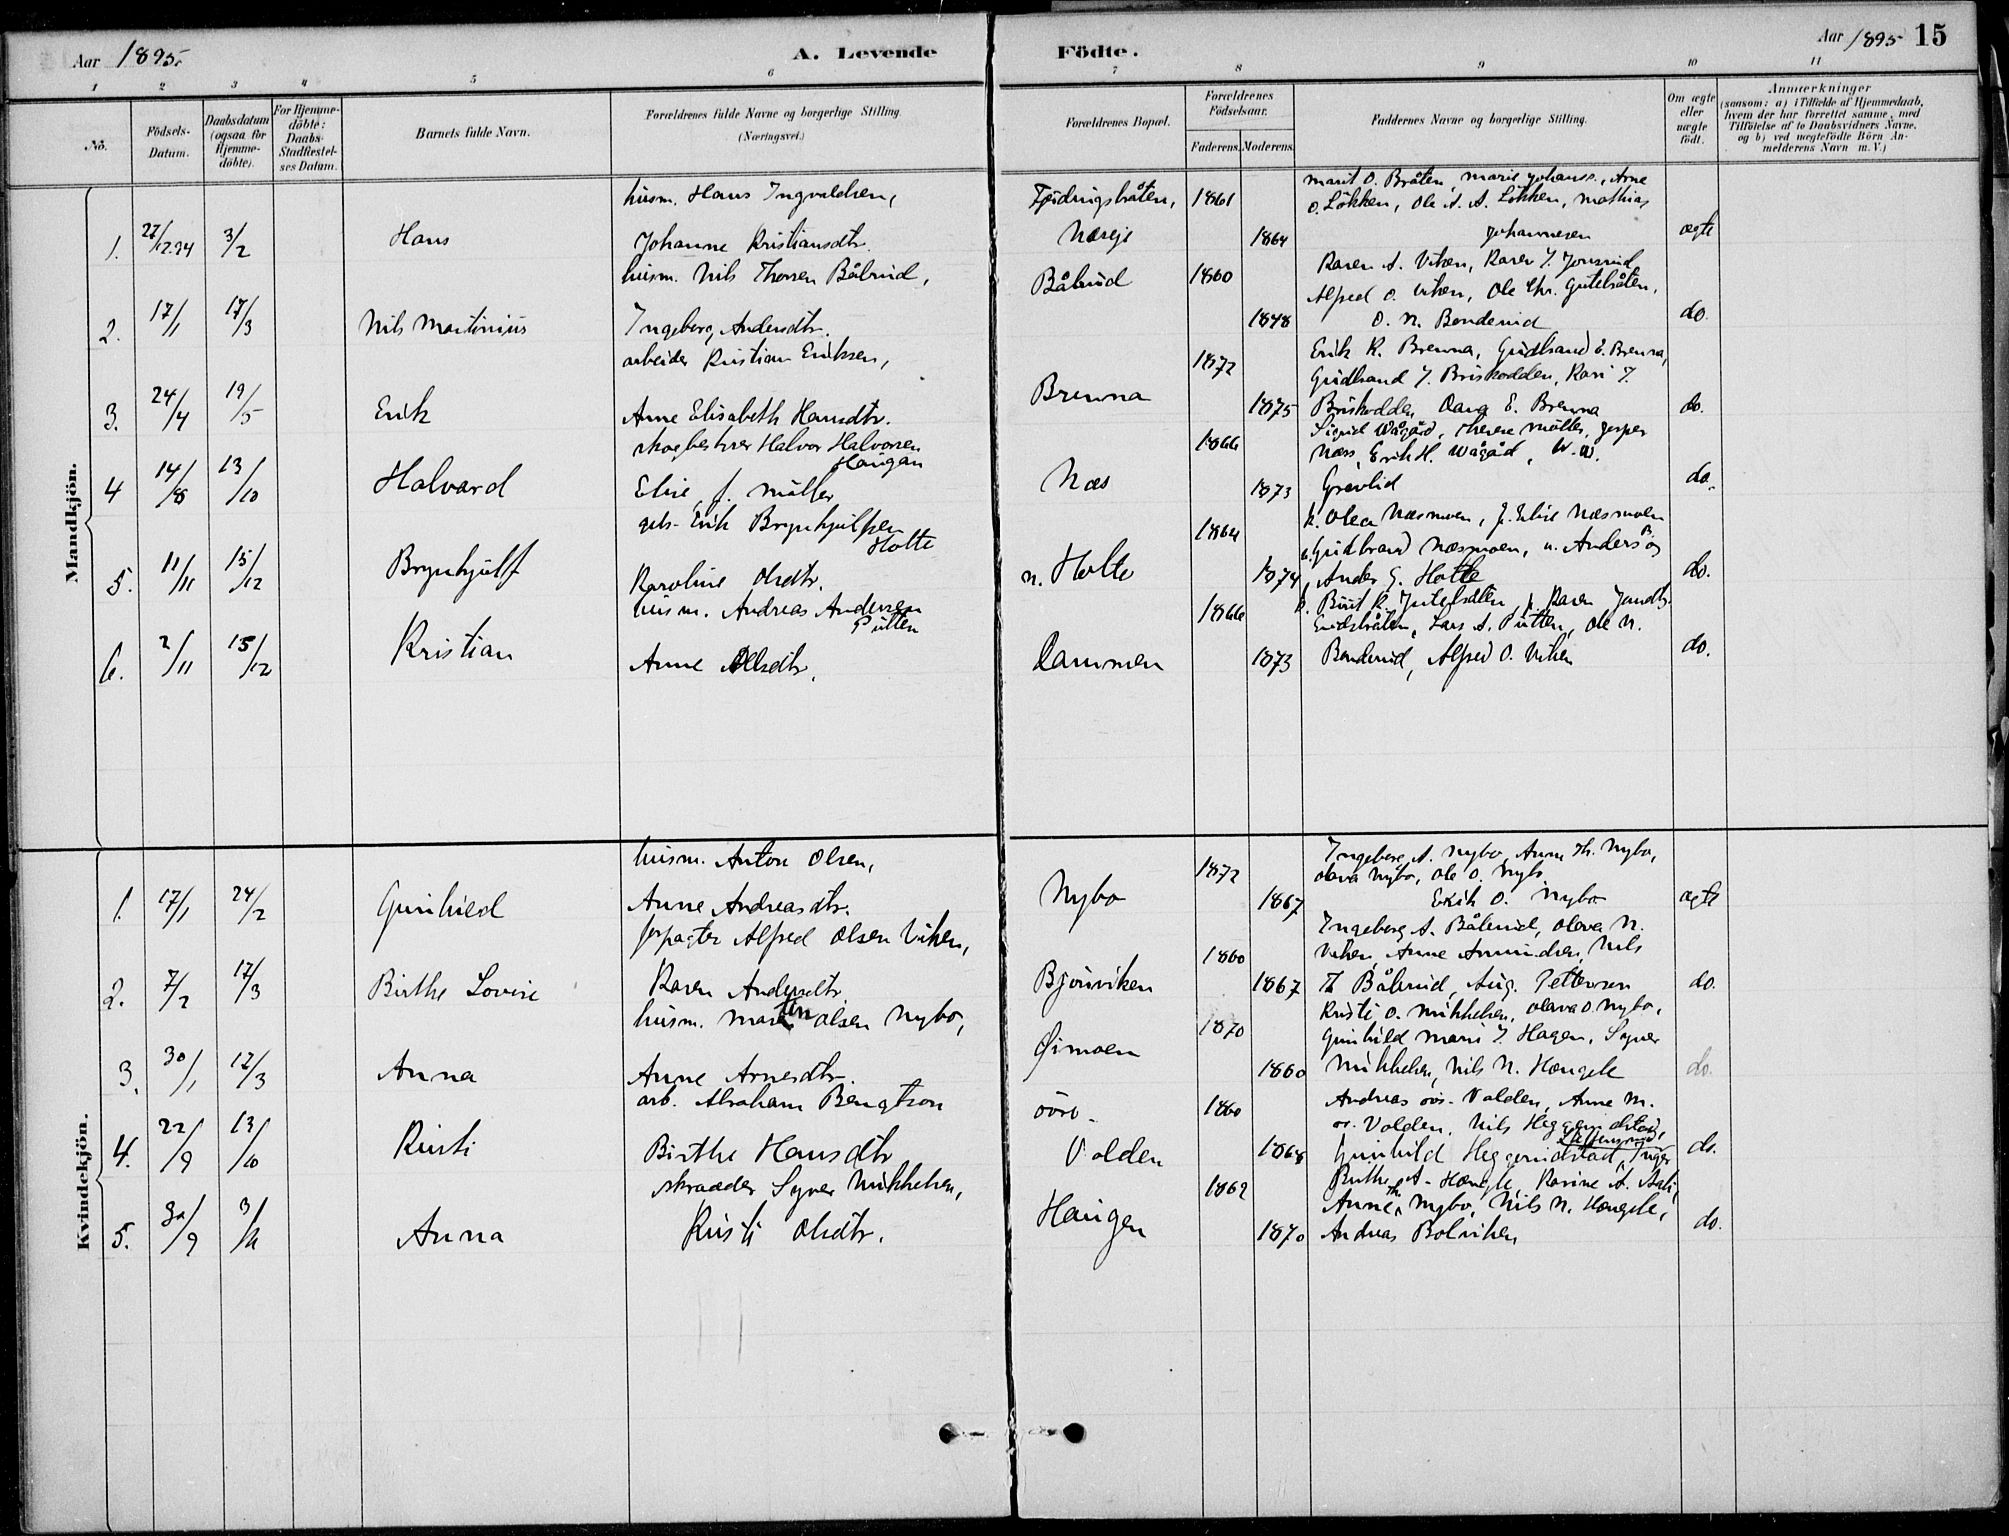 Aar 1895.
A. Levende Födte.
Aar 1895 15
1 2 3 4 5 6 7 8 9 10 11
No.
Födsels-Datum.
Daabsdatum (ogsaa for Hjemme-döbte).
For Hjemme-döbte: Daabs-Stadfæstel-ses Datum.
Barnets fulde Navn.
Forældrenes fulde Navne og borgerlige Stilling.
(Næringsvei.)
Forældrenes Bopæl.
Forældrenes Födselsaar.
Faderens. Moderens.
Faddernes Navne og borgerlige Stilling.
Om ægte eller uægte födt.
Anmærkninger
(saasom: a) i Tilfælde af Hjemmedaab, hvem der har forrettet samme, med Tilföielse af to Daabsvidners Navne, og b) ved uægtefödte Börn An-melderens Navn m. V.)
Mandkjön.
husm. Hans Ingvaldsen, 1861 Marit O. Bråten, Marie Johanss., Arne
O. Løkken, Ole A. A. Løkken, Mathias
1. 27/12.94 3/2 Hans Johanne Kristiansdtr. 1864 Johannesen ægte
husm. Nils Thoresen Bålrud, Bålrud 1860 Karen A. Viken, Karen J.
Alfred O. Viken, Ole Chr.
2. 17/1 17/3 Nils Martinius Ingeborg Andersdtr. 1848 O. N. Benderud do.
arbeider Kristian Eriksen, 1872 Erik K. Brenna, Gudbrand E. Brenna,
Gudbrand J. Briskodden, Kari J.
3. 24/4 19/5 Erik Anne Elisabeth Hansdtr. Brenna 1875 Briskodden, E. Brenna do.
skogbestyrer Halvor Halvorsen Haugan 1866 Sigrid Wågård, Therese Møller, Jesper
Næss, Erik H. Wågård, W. W.
4 14/8 13/10 Halvard Elise f. Møller Næs 1873 Gravlid do.
gbr. Erik Brynhjulfsen Holte 1864 k. Olea Næsmoen, p. Elise Næsmoen
Gudbrand Næsmoen, u. Anders
5. 11/11 15/12 Brynhjulf Karoline Olsdtr. n. Holte 1874 Anders G. Holte do.
husm. Andreas Andersen Pütten 1866 k. Birit K. p. Karen
Lars A. Pütten, Ole N.
6. 2/11 15/12 Kristian Anne Olsdtr. Dammen 1873 Benderud, Alfred O. Viken do.
Kvindekjön.
husm. Anton Olsen, 1872 Ingeborg A. Nybo, Anne Th. Nybo,
Olava Nybo, Ole O. Nybo
1. 17/1 24/2 Gunhild Anne Andreasdtr. Nybo 1867 Erik O. Nybo ægte
forpagter Alfred Olsen Viken, 1860 Ingeborg A. Bålrud, Olava N.
Viken, Anne Amundsen, Nils
2. 7/2 17/3 Birthe Lovise Karen Andersdtr. Bjørnviken 1867 T. Bålrud, Aug. Pettersen do.
husm. Marten Olsen Nybo, 1870 Kristi O. Mikkelsen, Olava O. Nybo,
Gunhild Marie J. Hagen, Syver
3. 30/1 17/3 Anna Anne Arnesdtr. Øimoen 1860 Mikkelsen, Nils N. Hængsle do.
arb. Abraham Bengtson 1860 Andreas övr. Volden, Anne M.
ör. Volden, Nils
4. 22/9 13/10 Kirsti Birthe Hansdtr. övre Volden 1868 Gunhild do.
skrædder Syver Mikkelsen, 1862 Birthe A. Hængsle, Karine A. Bali,
Anne Th. Nybo, Nils N. Hængsle,
5. 30/9 3/11 Anna Kirsti Olsdtr. Haugen 1870 Andreas Bolviken do.